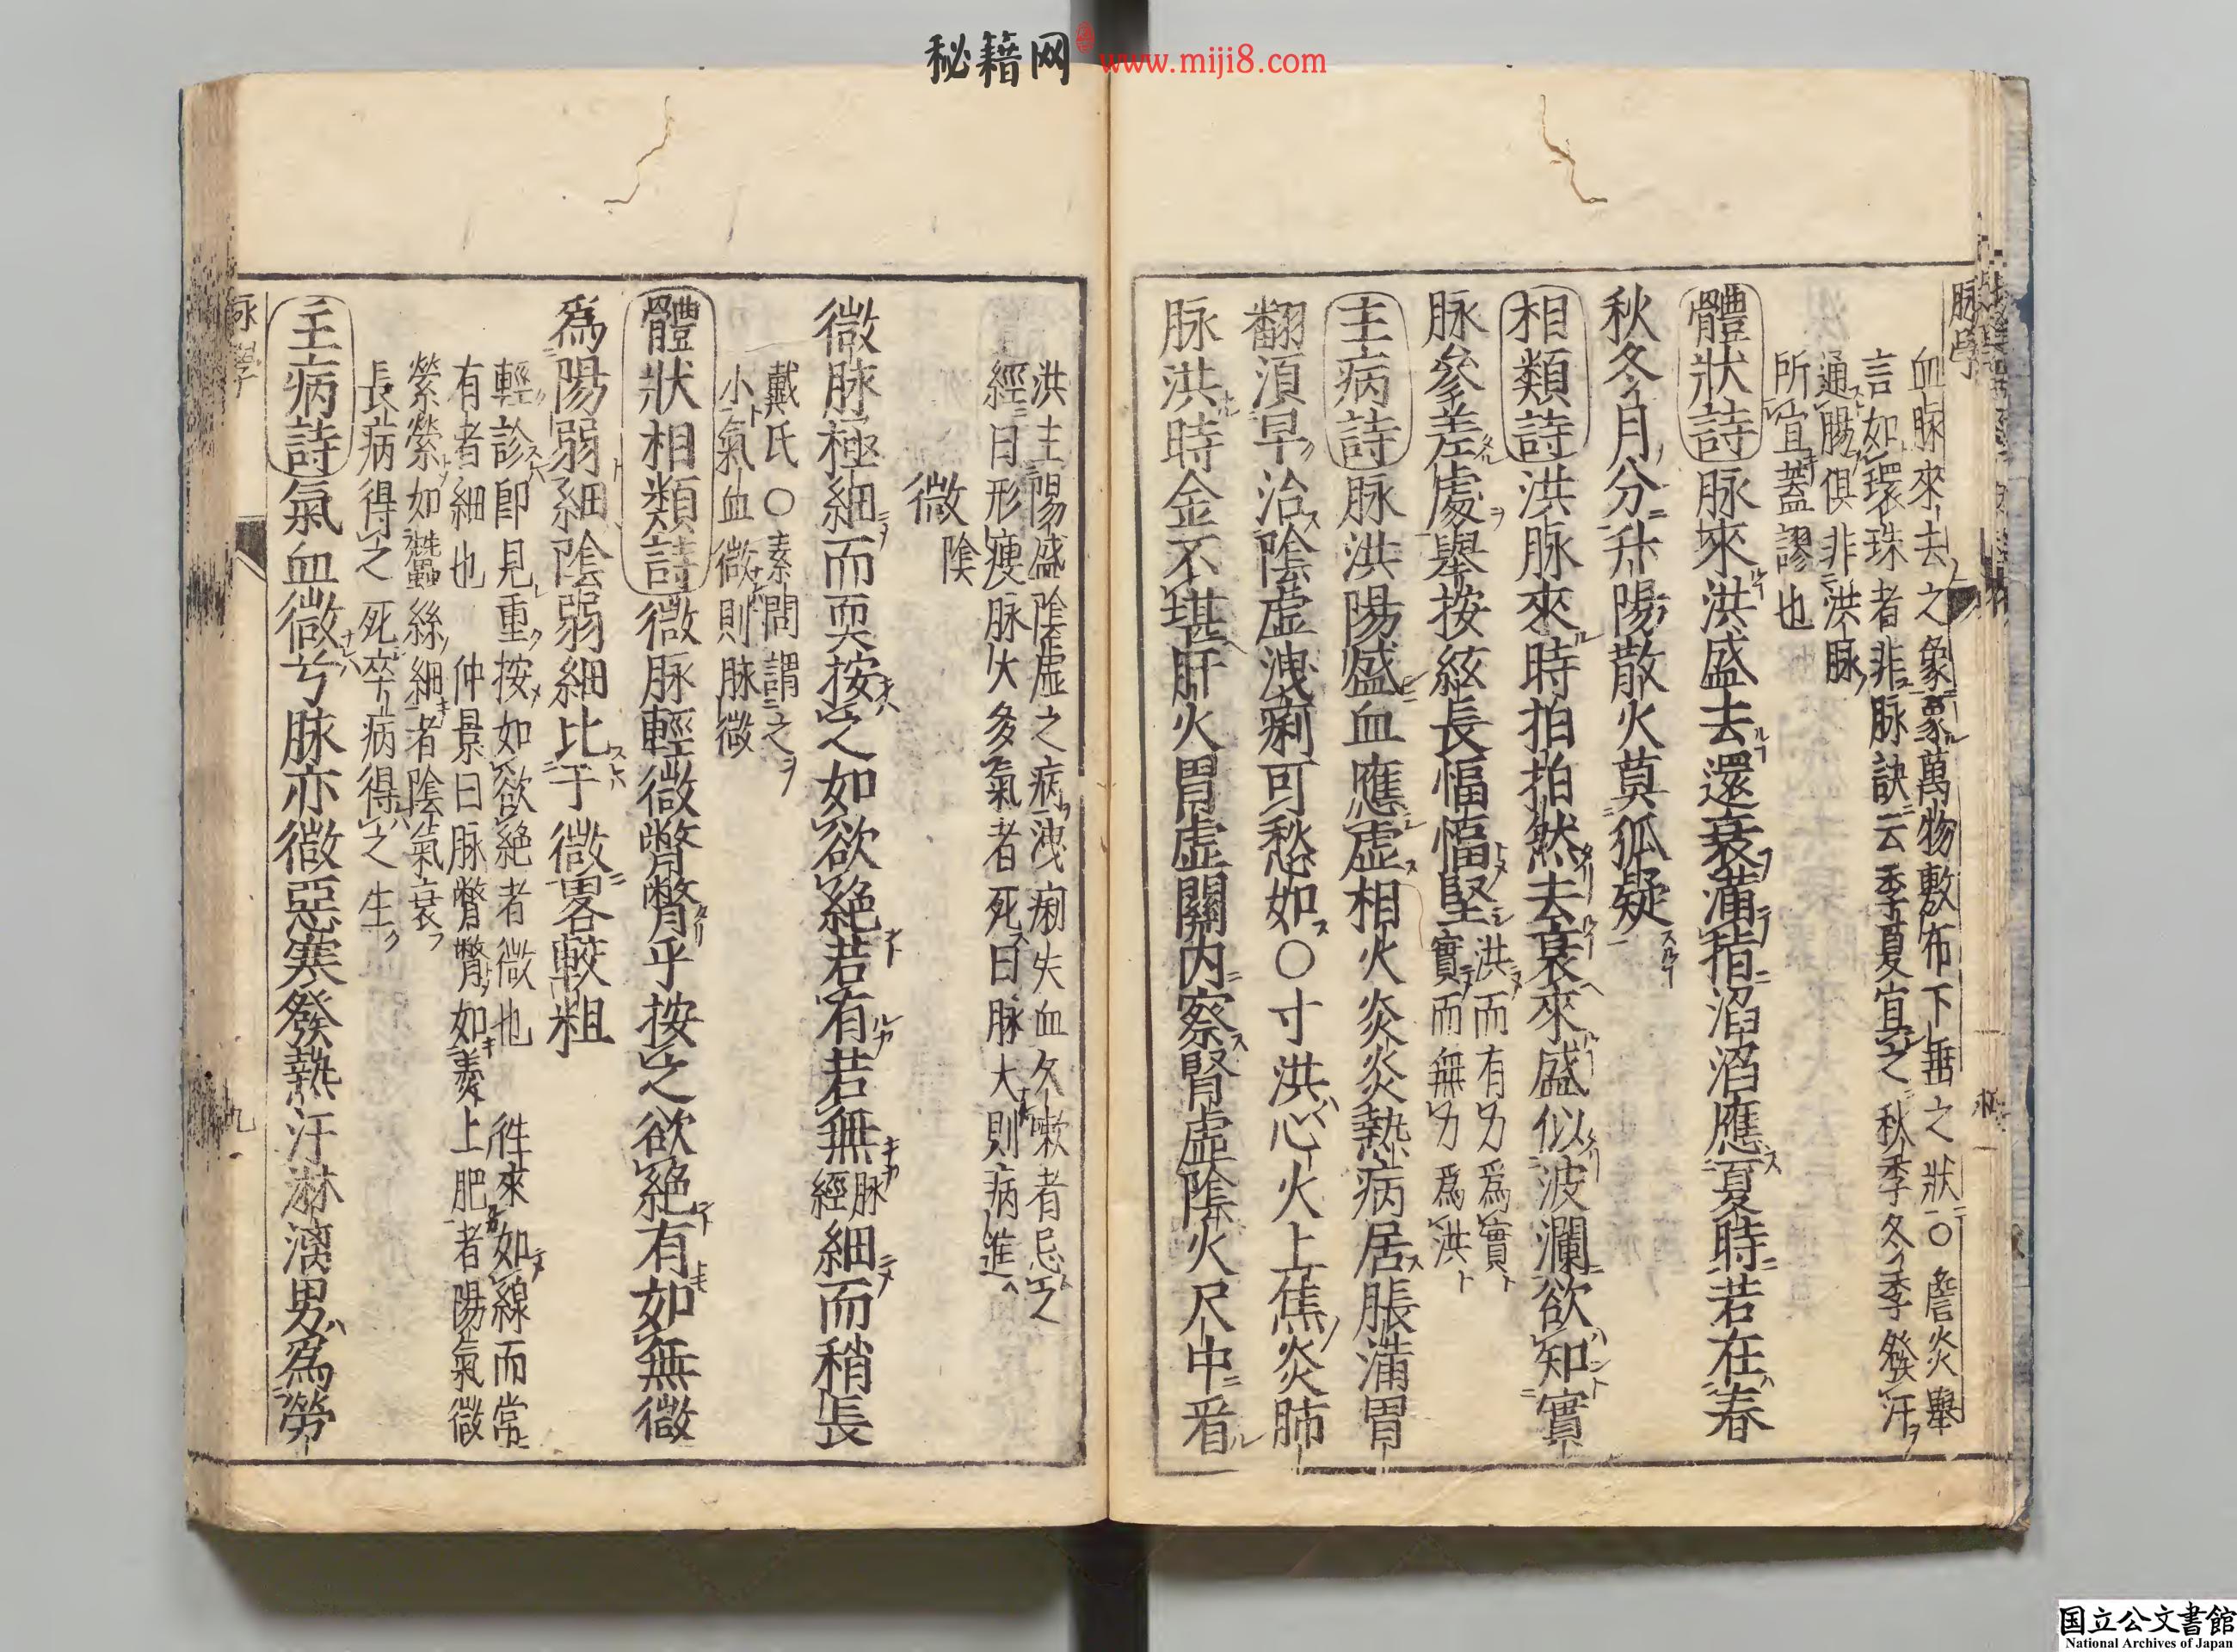 秘籍网 www.miji8.com
脉學
血脉來去之象象萬物敷布下垂之狀〇詹炎舉
言如環珠者非脉訣云季夏宜之秋季冬季發汗
通腸俱非洪脉
所宜蓋謬也
體狀詩脉來洪盛去還衰滿指滔滔應夏時若在春
秋冬月分升陽散火莫狐疑
相類詩洪脉來時拍拍然去衰來盛似波瀾欲知實
脉參差處舉按絃長愊愊堅洪而有力爲實
實而無力爲洪
主病詩脉洪陽盛血應虛相火炎炎熱病居脹滿胃
翻湏早治陰虛洩痢可愁如〇寸洪心火上焦炎肺
脉洪時金不堪肝火胃虛關内察腎虛陰火尺中看
洪主陽盛陰虛之病洩痢失血久嗽者忌之
經曰形瘦脉大多氣者死曰脉大則病進
微 陰
微脉極細而耎按之如欲絶若有若無脉
經細而稍長
戴氏〇素問謂之
小氣血微則脉微
體狀相類詩微脉輕微瞥瞥乎按之欲絶有如無微
爲陽弱細陰弱細比于微畧較粗
輕診即見重按如欲絶者微也 徃來如線而常
有者細也 仲景曰脉瞥瞥如羹上肥者陽氣微
縈縈如蠶絲細者陰氣衰
長病得之死卒病得之生
主病詩氣血微兮脉亦微惡寒發熱汗淋漓男爲勞
脉學
九
国立公文書館
National Archives of Japan